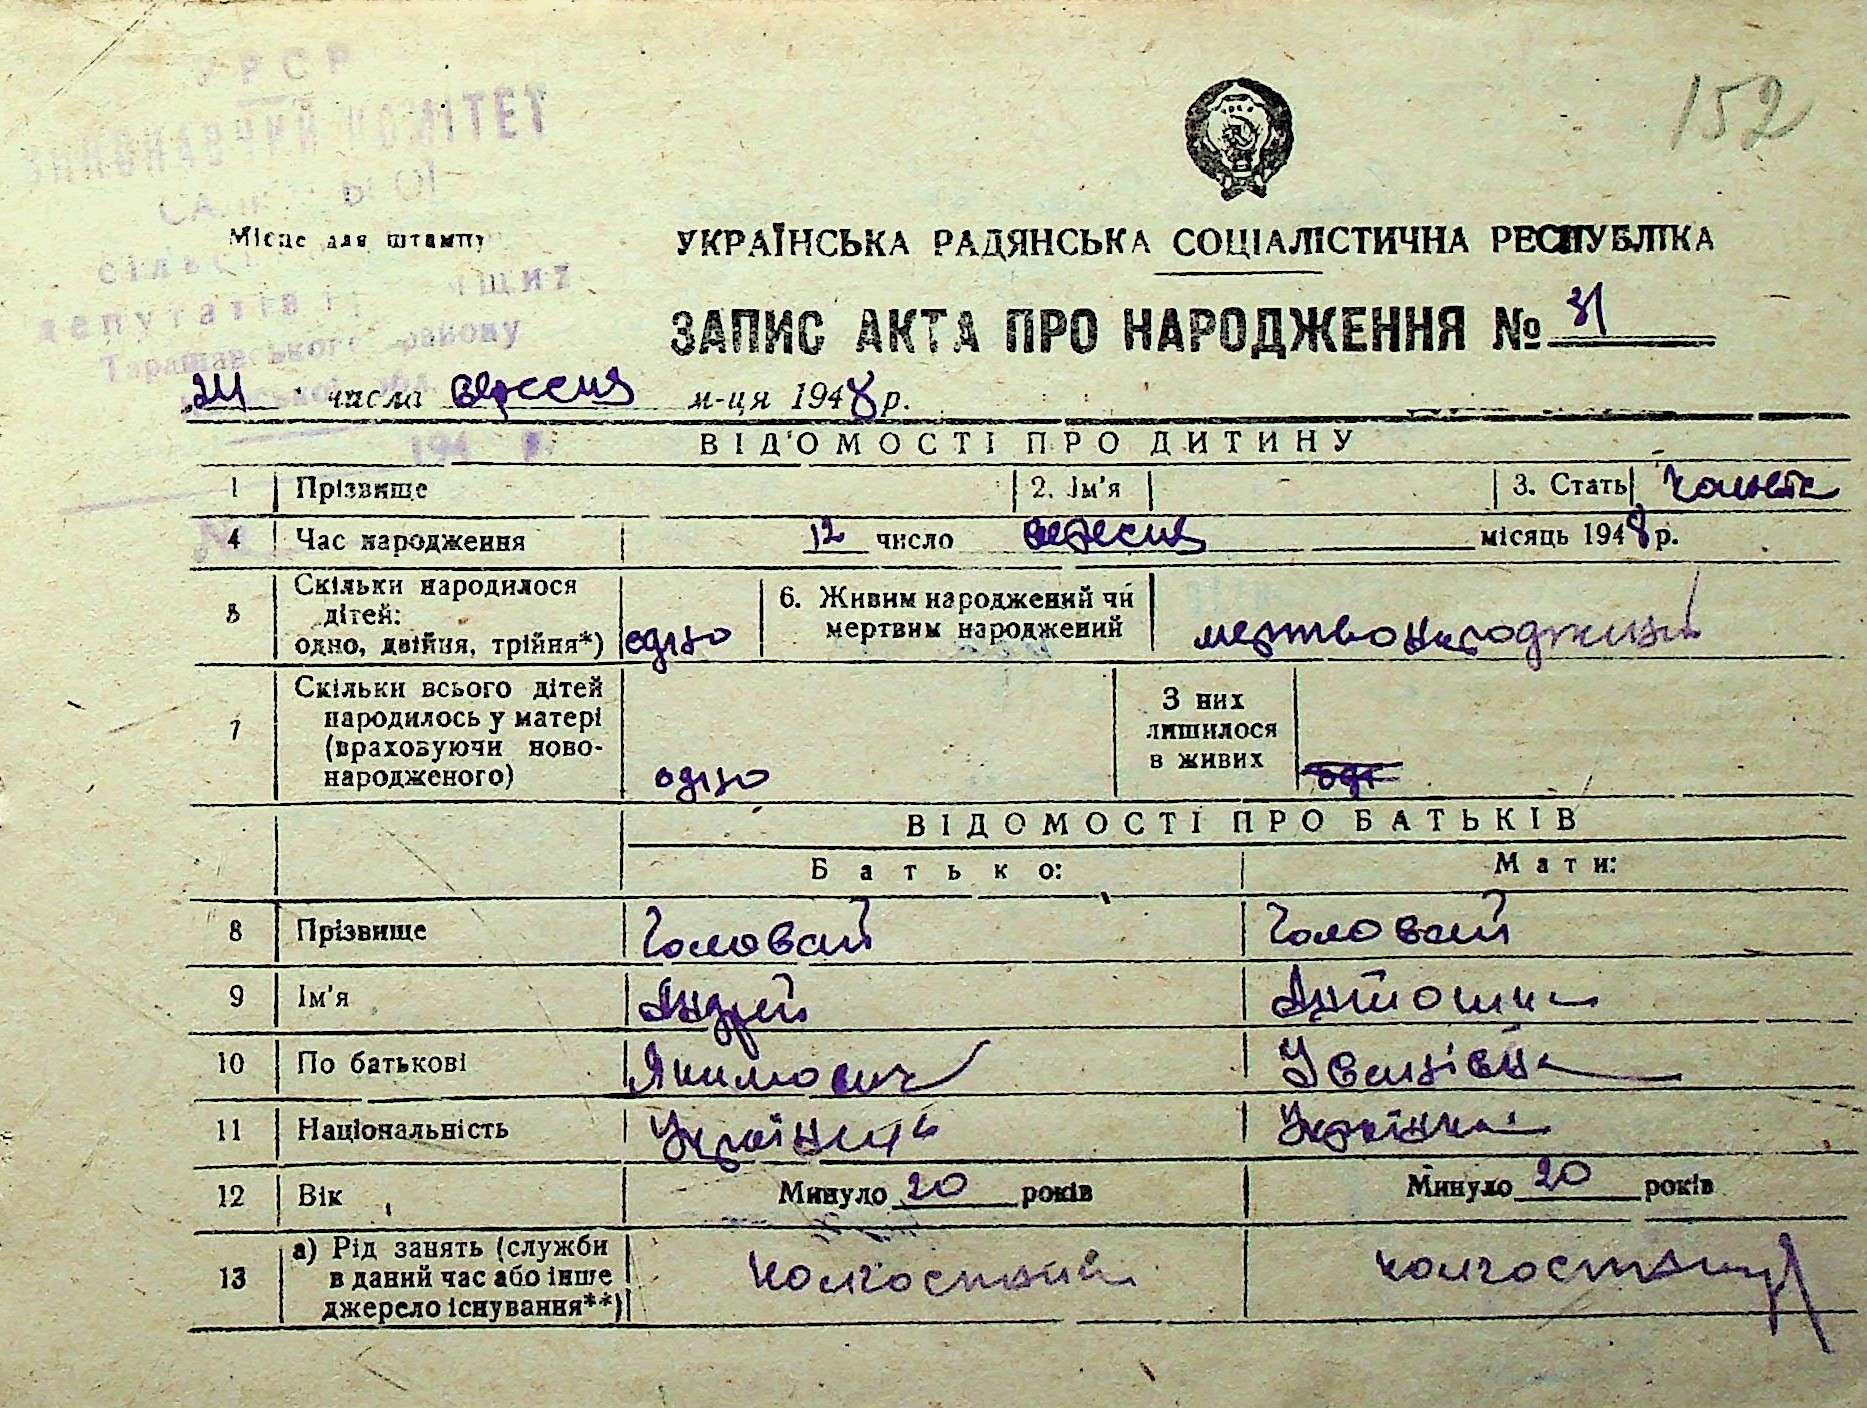 УРСР
ВИКОНАВЧИЙ КОМІТЕТ
Місце для штампу
депутатів
Таращавського району
обл.
194 р.
№
152
УКРАЇНСЬКА РАДЯНСЬКА СОЦІАЛІСТИЧНА РЕСПУБЛІКА
ЗАПИС АКТА ПРО НАРОДЖЕННЯ № 31
24 числа вересня м-ця 1948 р.
ВІДОМОСТІ ПРО ДИТИНУ
1 Прізвище 2. Ім'я 3. Стать
4 Час народження 12 число вересня місяць 1948 р.
5 Скільки народилося
дітей:
одно, двійня, трійня*) одно 6. Живим народжений чи
мертвим народжений мертвонароджений
7 Скільки всього дітей
народилось у матері
(враховуючи ново-
народженого) одно З них
лишилося
в живих
ВІДОМОСТІ ПРО БАТЬКІВ
Батько: Мати:
8 Прізвище Головай Головай
9 Ім'я Андрей Антонина
10 По батькові Якимович Іванівна
11 Національність Українець Українка
12 Вік Минуло 20 років Минуло 20 років
13 а) Рід занять (служби
в даний час або інше
джерело існування**) колгоспник колгоспниця